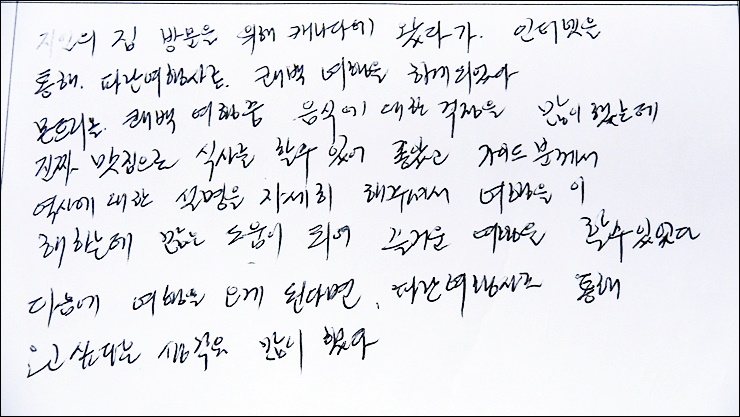 지인의 집 방문을 위해 캐나다에 왔다가. 인터넷을
통해. 파란여행사로. 퀘백 여행을 하게되었다
몬트리올. 퀘백 여행중 음식에 대한 걱정을 많이 했는데
진짜 맛집으로 식사를 할수 있어 좋았고 가이드 분께서
역사에 대한 설명을 자세히 해주셔서 여행을 이
해하는데 많은 도움이 되어 즐거운 여행을 할수있었다
다음에 여행을 오게 된다면, 파란여행사로 통해
오고 싶다는 생각을 많이 했다